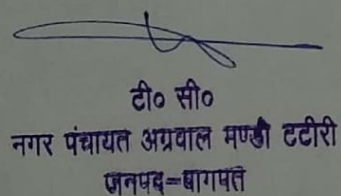 टी० सी०
नगर पंचायत अग्रवाल मण्डी टटीरी
जनपद=बागपत